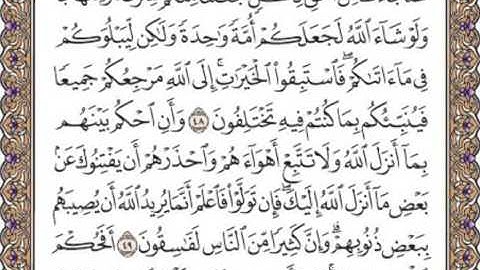 وَلَوْ شَآءَ ٱللَّهُ لَجَعَلَكُمْ أُمَّةً وَٰحِدَةً وَلَٰكِن لِّيَبْلُوَكُمْ
فِى مَآ ءَاتَىٰكُمْ ۖ فَٱسْتَبِقُوا۟ ٱلْخَيْرَٰتِ ۚ إِلَى ٱللَّهِ مَرْجِعُكُمْ جَمِيعًا
فَيُنَبِّئُكُم بِمَا كُنتُمْ فِيهِ تَخْتَلِفُونَ ٤٨ وَأَنِ ٱحْكُم بَيْنَهُم
بِمَآ أَنزَلَ ٱللَّهُ وَلَا تَتَّبِعْ أَهْوَآءَهُمْ وَٱحْذَرْهُمْ أَن يَفْتِنُوكَ عَنۢ
بَعْضِ مَآ أَنزَلَ ٱللَّهُ إِلَيْكَ ۖ فَإِن تَوَلَّوْا۟ فَٱعْلَمْ أَنَّمَا يُرِيدُ ٱللَّهُ أَن يُصِيبَهُم
بِبَعْضِ ذُنُوبِهِمْ ۗ وَإِنَّ كَثِيرًا مِّنَ ٱلنَّاسِ لَفَٰسِقُونَ ٤٩ أَفَحُكْمَ